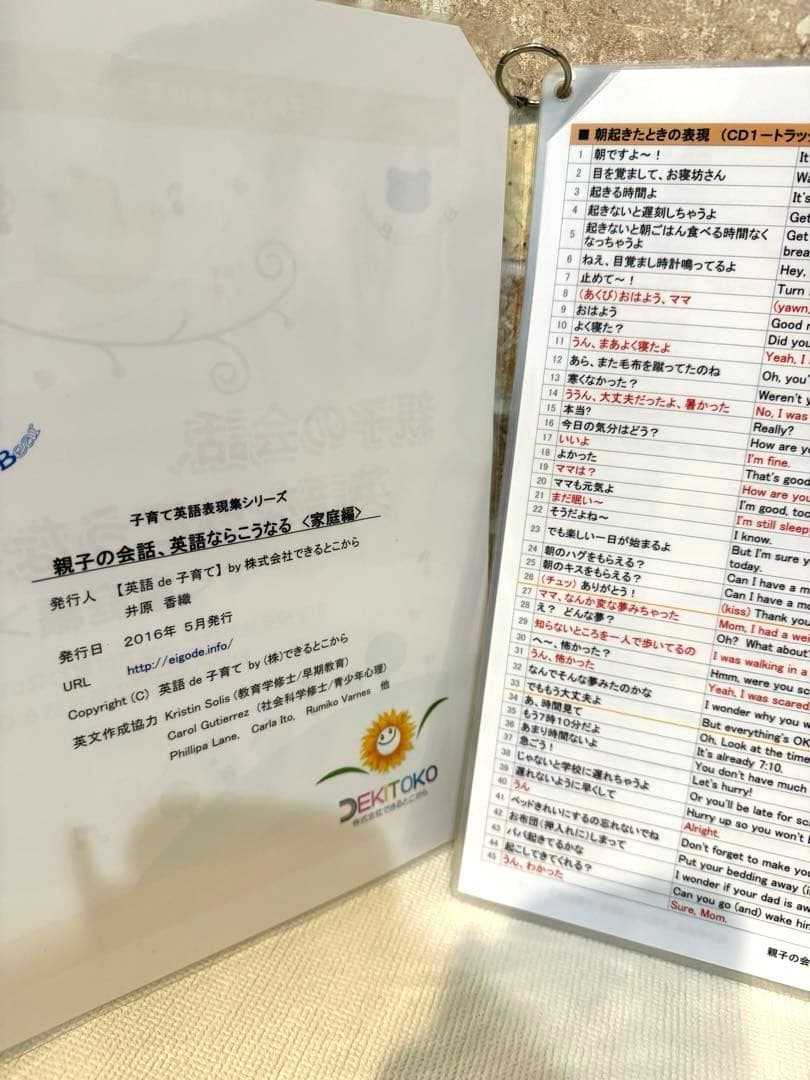 Bear
子育て英語表現集シリーズ
親子の会話、英語ならこうなる〈家庭編〉
発行人 【英語 de 子育て】 by 株式会社できるとこから
井原 香織
発行日 2016年 5月発行
URL http://eigode.info/
Copyright (C) 英語 de 子育て by (株)できるとこから
英文作成協力 Kristin Solis (教育学修士/早期教育)
Carol Gutierrez (社会科学修士/青少年心理)
Phillipa Lane、 Carla Ito、 Rumiko Varnes 他
DEKITOKO
株式会社できるとこから
■ 朝起きたときの表現 (CD1ートラッ
1 朝ですよ～！ It
2 目を覚まして、お寝坊さん Wa
3 起きる時間よ It's
4 起きないと遅刻しちゃうよ Get
5 起きないと朝ごはん食べる時間なく Get
なっちゃうよ brea
6 ねえ、目覚まし時計鳴ってるよ Hey,
7 止めて～！ Turn
8 (あくび)おはよう、ママ (yawn,
9 おはよう Good
10 よく寝た？ Did you
11 うん、まあよく寝たよ Yeah, I
12 あら、また毛布を蹴ってたのね Oh, you'
13 寒くなかった？ Weren't y
14 ううん、大丈夫だったよ、暑かった No, I was
15 本当? Really?
16 今日の気分はどう？ How are yo
17 いいよ I'm fine.
18 よかった That's good
19 ママは？ How are you
20 ママも元気よ I'm good, too
21 まだ眠い～ I'm still sleepy
22 そうだよね～ I know.
23 でも楽しい一日が始まるよ But I'm sure y
today.
24 朝のハグをもらえる？ Can I have a m
25 朝のキスをもらえる？ Can I have a mo
26 (チュッ) ありがとう！ (kiss) Thank you
27 ママ、なんか変な夢みちゃった Mom, I had a wei
28 え？ どんな夢？ Oh? What about?
29 知らないところを一人で歩いてるの I was walking in a
30 へ～、怖かった？ Hmm, were you s
31 うん、怖かった Yeah, I was scared.
32 なんでそんな夢みたのかな I wonder why you
33 でももう大丈夫よ But everything's OK
34 あ、時間見て Oh, Look at the time
35 もう7時10分だよ It's already 7:10.
36 あまり時間ないよ You don't have much
37 急ごう！ Let's hurry!
38 じゃないと学校に遅れちゃうよ Or you'll be late for sc
39 遅れないように早くして Hurry up so you won't
40 うん Alright.
41 ベッドきれいにするの忘れないでね Don't forget to make yo
42 お布団(押入れに)しまって Put your bedding away (i
43 パパ起きてるかな I wonder if your dad is aw
44 起こしてきてくれる？ Can you go (and) wake him
45 うん、わかった Sure, Mom.
親子の会